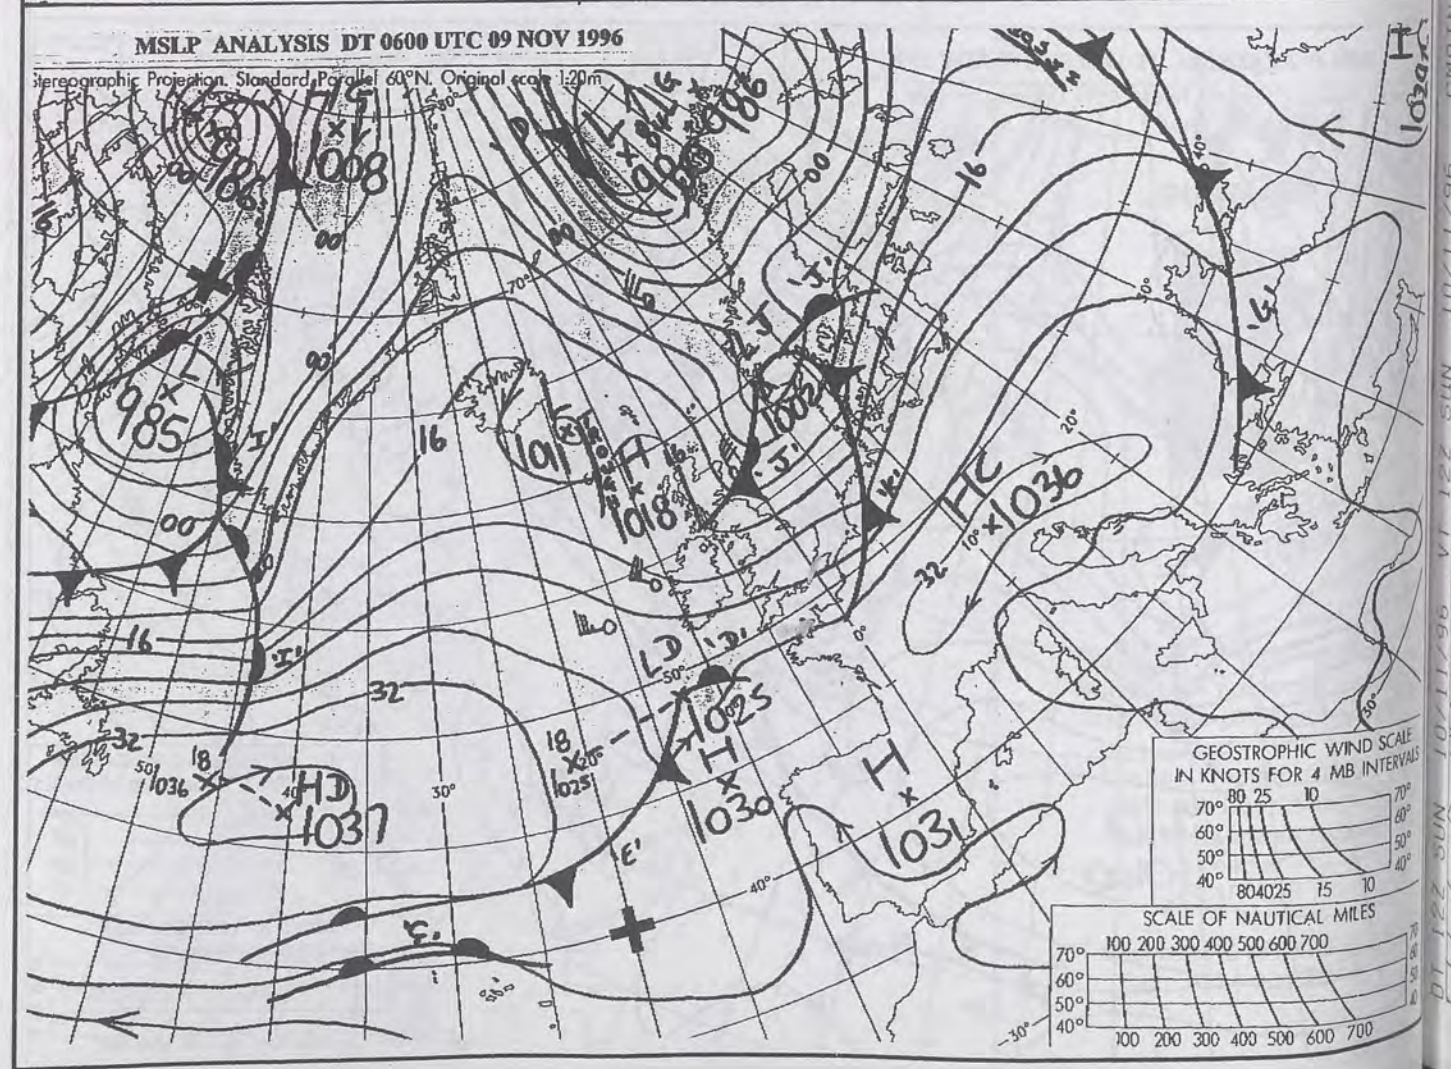 MSLP ANALYSIS DT 0600 UTC 09 NOV 1996
Stereographic Projection. Standard Parallel 60°N. Original scale 1:20m
80°
1008
986
L
00
00
16
16
00
70°
40°
L
985
'J'
1002
'J'
'K'
'G'
16
1011
H
1018
16
20°
HC
1036
10°
32
00
'I'
00
16
'I'
32
32
LD
'D'
50°
1025
H
1030
0°
H
1031
18
20°
1025
50°
18
1036
HD
40°
1037
30°
'E'
40°
30°
-30°
GEOSTROPHIC WIND SCALE
IN KNOTS FOR 4 MB INTERVALS
80 25 10
70° 70°
60° 60°
50° 50°
40° 40°
80 40 25 15 10
SCALE OF NAUTICAL MILES
100 200 300 400 500 600 700
70°
60°
50°
40°
100 200 300 400 500 600 700